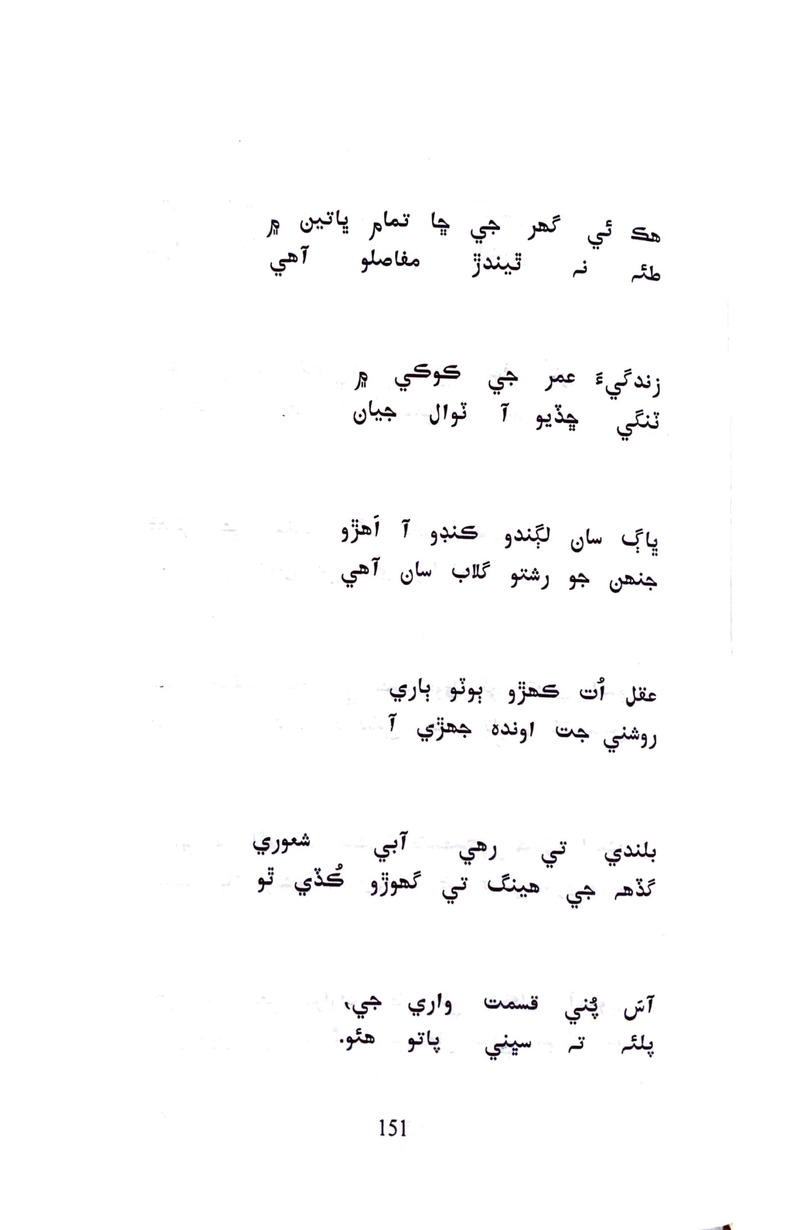 هڪ ئي گهر جي ڇا تمام ڀاتين ۾
طئہ نہ ٿيندڙ مفاصلو آهي
زندگيءَ عمر جي ڪوڪي ۾
ٽنگي ڇڏيو آ ٽوال جيان
ڀاڳ سان لڳندو ڪنڊو آ اَهڙو
جنهن جو رشتو گلاب سان آهي
عقل اُت ڪهڙو ٻوٽو ٻاري
روشني جت اونده جهڙي آ
بلندي تي رهي آبي شعوري
گڏهہ جي هينگ تي گهوڙو ڪُڏي ٿو
آسَ پُني قسمت واري جي،
پلئہ تہ سڀني پاتو هئو.
151